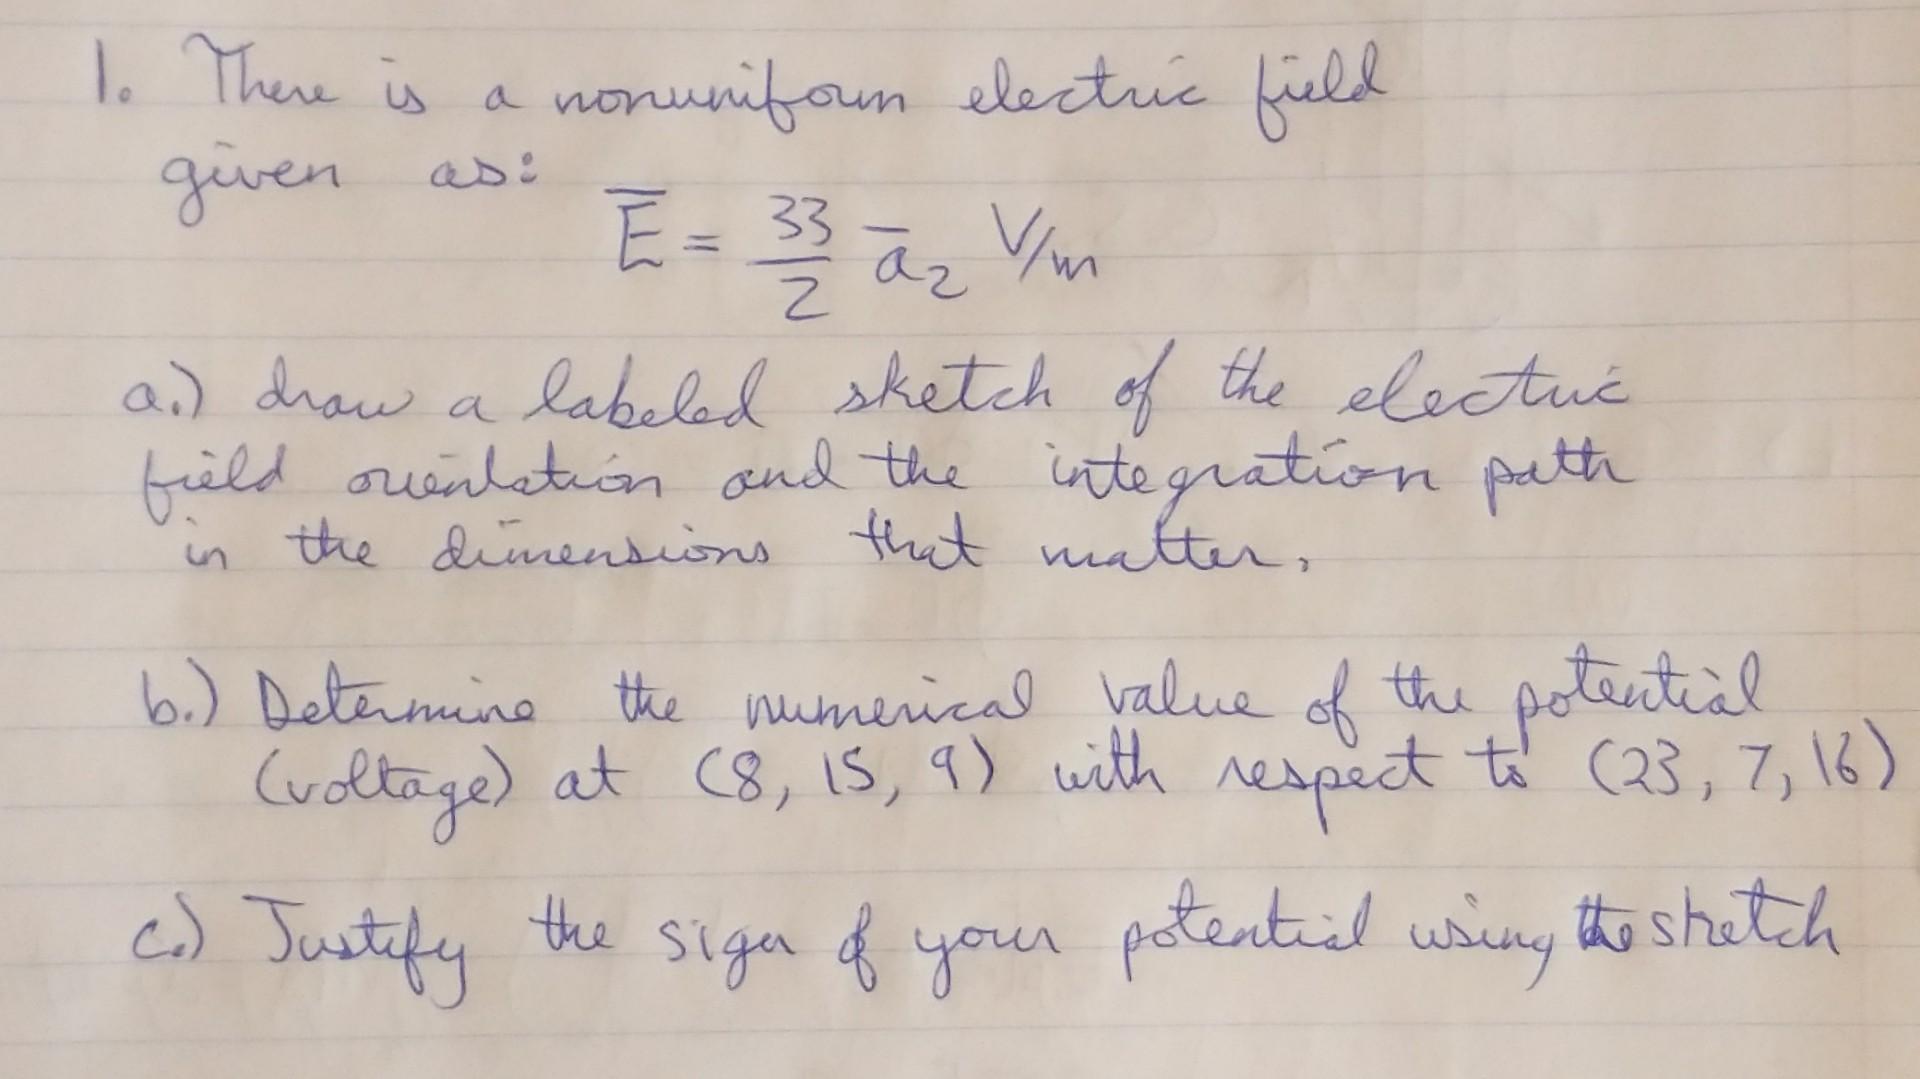 1. There is a nonuniform electric field
given as:
E̅ = 33/z a̅z V/m
a.) draw a labeled sketch of the electric
field orientation and the integration path
in the dimensions that matter.
b.) Determine the numerical value of the potential
(voltage) at (8, 15, 9) with respect to (23, 7, 16)
c.) Justify the sign of your potential using the sketch